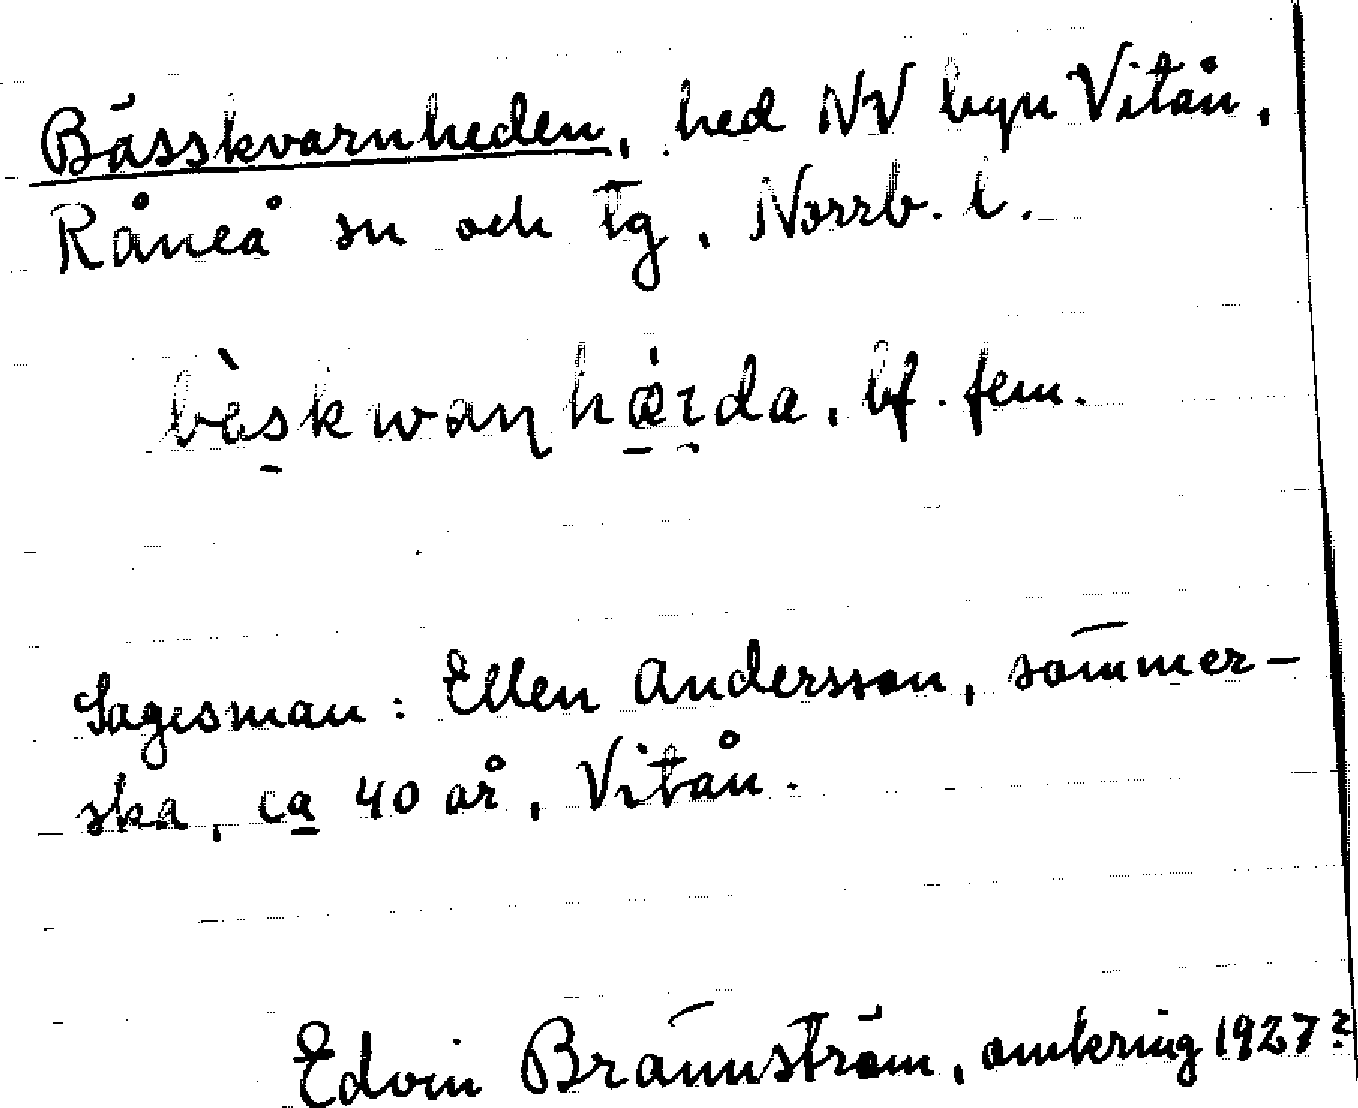 Bässkvarnheden, hed NV byn Vitån,
Råneå sn och tg, Norrb. l.
bf. fem.
Sagesman: Ellen Andersson, sömmer-
ska, ca 40 år, Vitån.
Edvin Brännström, omkring 1927?